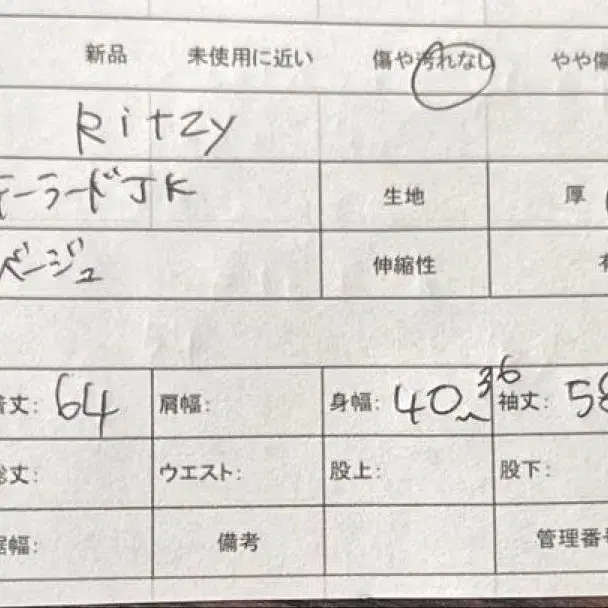 新品 未使用に近い 傷や汚れなし やや傷
Ritzy
テーラードJK 生地 厚
ベージュ 伸縮性
着丈: 64 肩幅: 身幅: 40〜36 袖丈: 58
総丈: ウエスト: 股上: 股下:
裾幅: 備考 管理番号